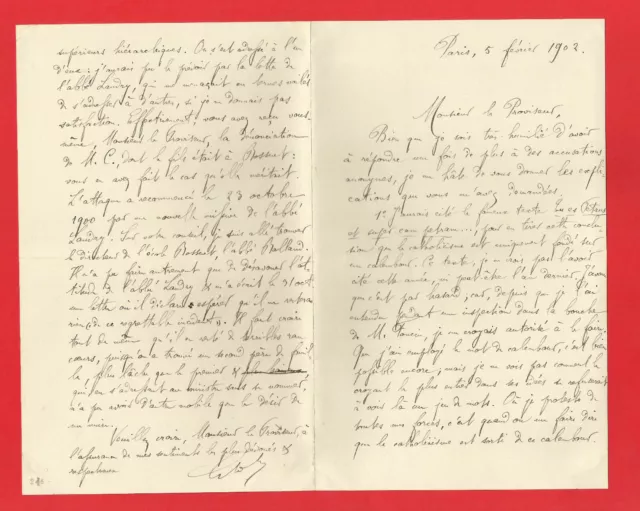 Paris, 5 février 1902.
Monsieur le Proviseur,
Bien que je sois très humilié d'avoir
à répondre une fois de plus à des accusations
anonymes, je me hâte de vous donner les expli-
cations que vous m'avez demandées.
1° J'aurais cité le fameux texte Tu es Petrus
et super hanc petram..., pour en tirer cette conclu-
sion que le catholicisme est uniquement fondé sur
un calembour. Ce texte, je ne crois pas l'avoir
cité cette année, ni peut-être l'an dernier. J'avoue
que c'est par hasard, car, depuis que je l'ai
entendu pendant une inspection dans la bouche
de M. je me croyais autorisé à le faire.
Que j'aie employé le mot de calembour, c'est bien
possible encore; mais je ne vois pas comment le
croyant le plus entier dans ses idées se refuserait
à voir là un jeu de mots. Où je proteste de
toutes mes forces, c'est quand on me fait dire
que le catholicisme est sorti de ce calembour.
supérieurs hiérarchiques. On s'est adressé à l'un
d'eux; j'aurais pu le prévoir par la lettre de
l'abbé Landry, qui me menaçait en termes voilés
de s'adresser à d'autres, si je ne donnais pas
satisfaction. Effectivement, vous avez reçu vous-
même, Monsieur le Proviseur, la dénonciation
de M. C., dont le fils était à Bossuet:
vous en avez fait le cas qu'elle méritait.
L'attaque a recommencé le 23 octobre
1900 par une nouvelle missive de l'abbé
Landry. Sur votre conseil, je suis allé trouver
le directeur de l'école Bossuet, l'abbé
Il n'a pu faire autrement que de désavouer l'at-
titude de l'abbé Landry & m'a écrit le 31 oct.
une lettre où il déclare « espérer qu'il ne restera
rien de ce regrettable incident ». Il faut croire
tout de même qu'il en resté de terribles ran-
cœurs, puisqu'on a trouvé un second père de famil-
le plus lâche que le premier &
qui, en s'adressant au ministre sans se nommer,
n'a pu avoir d'autre mobile que le désir de
me nuire.
Veuillez croire, Monsieur le Proviseur, à
l'assurance de mes sentiments les plus dévoués &
respectueux.